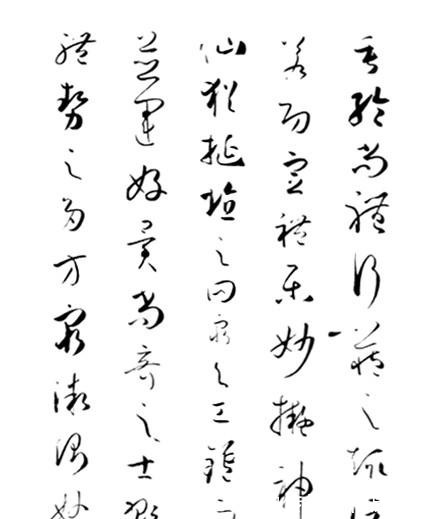 垂綸尚體行藏之趣
若功宣禮樂妙擬神
仙猶埏埴之罔窮與工鑪而
並運好異尚奇之士翫
體勢之多方窮微測妙